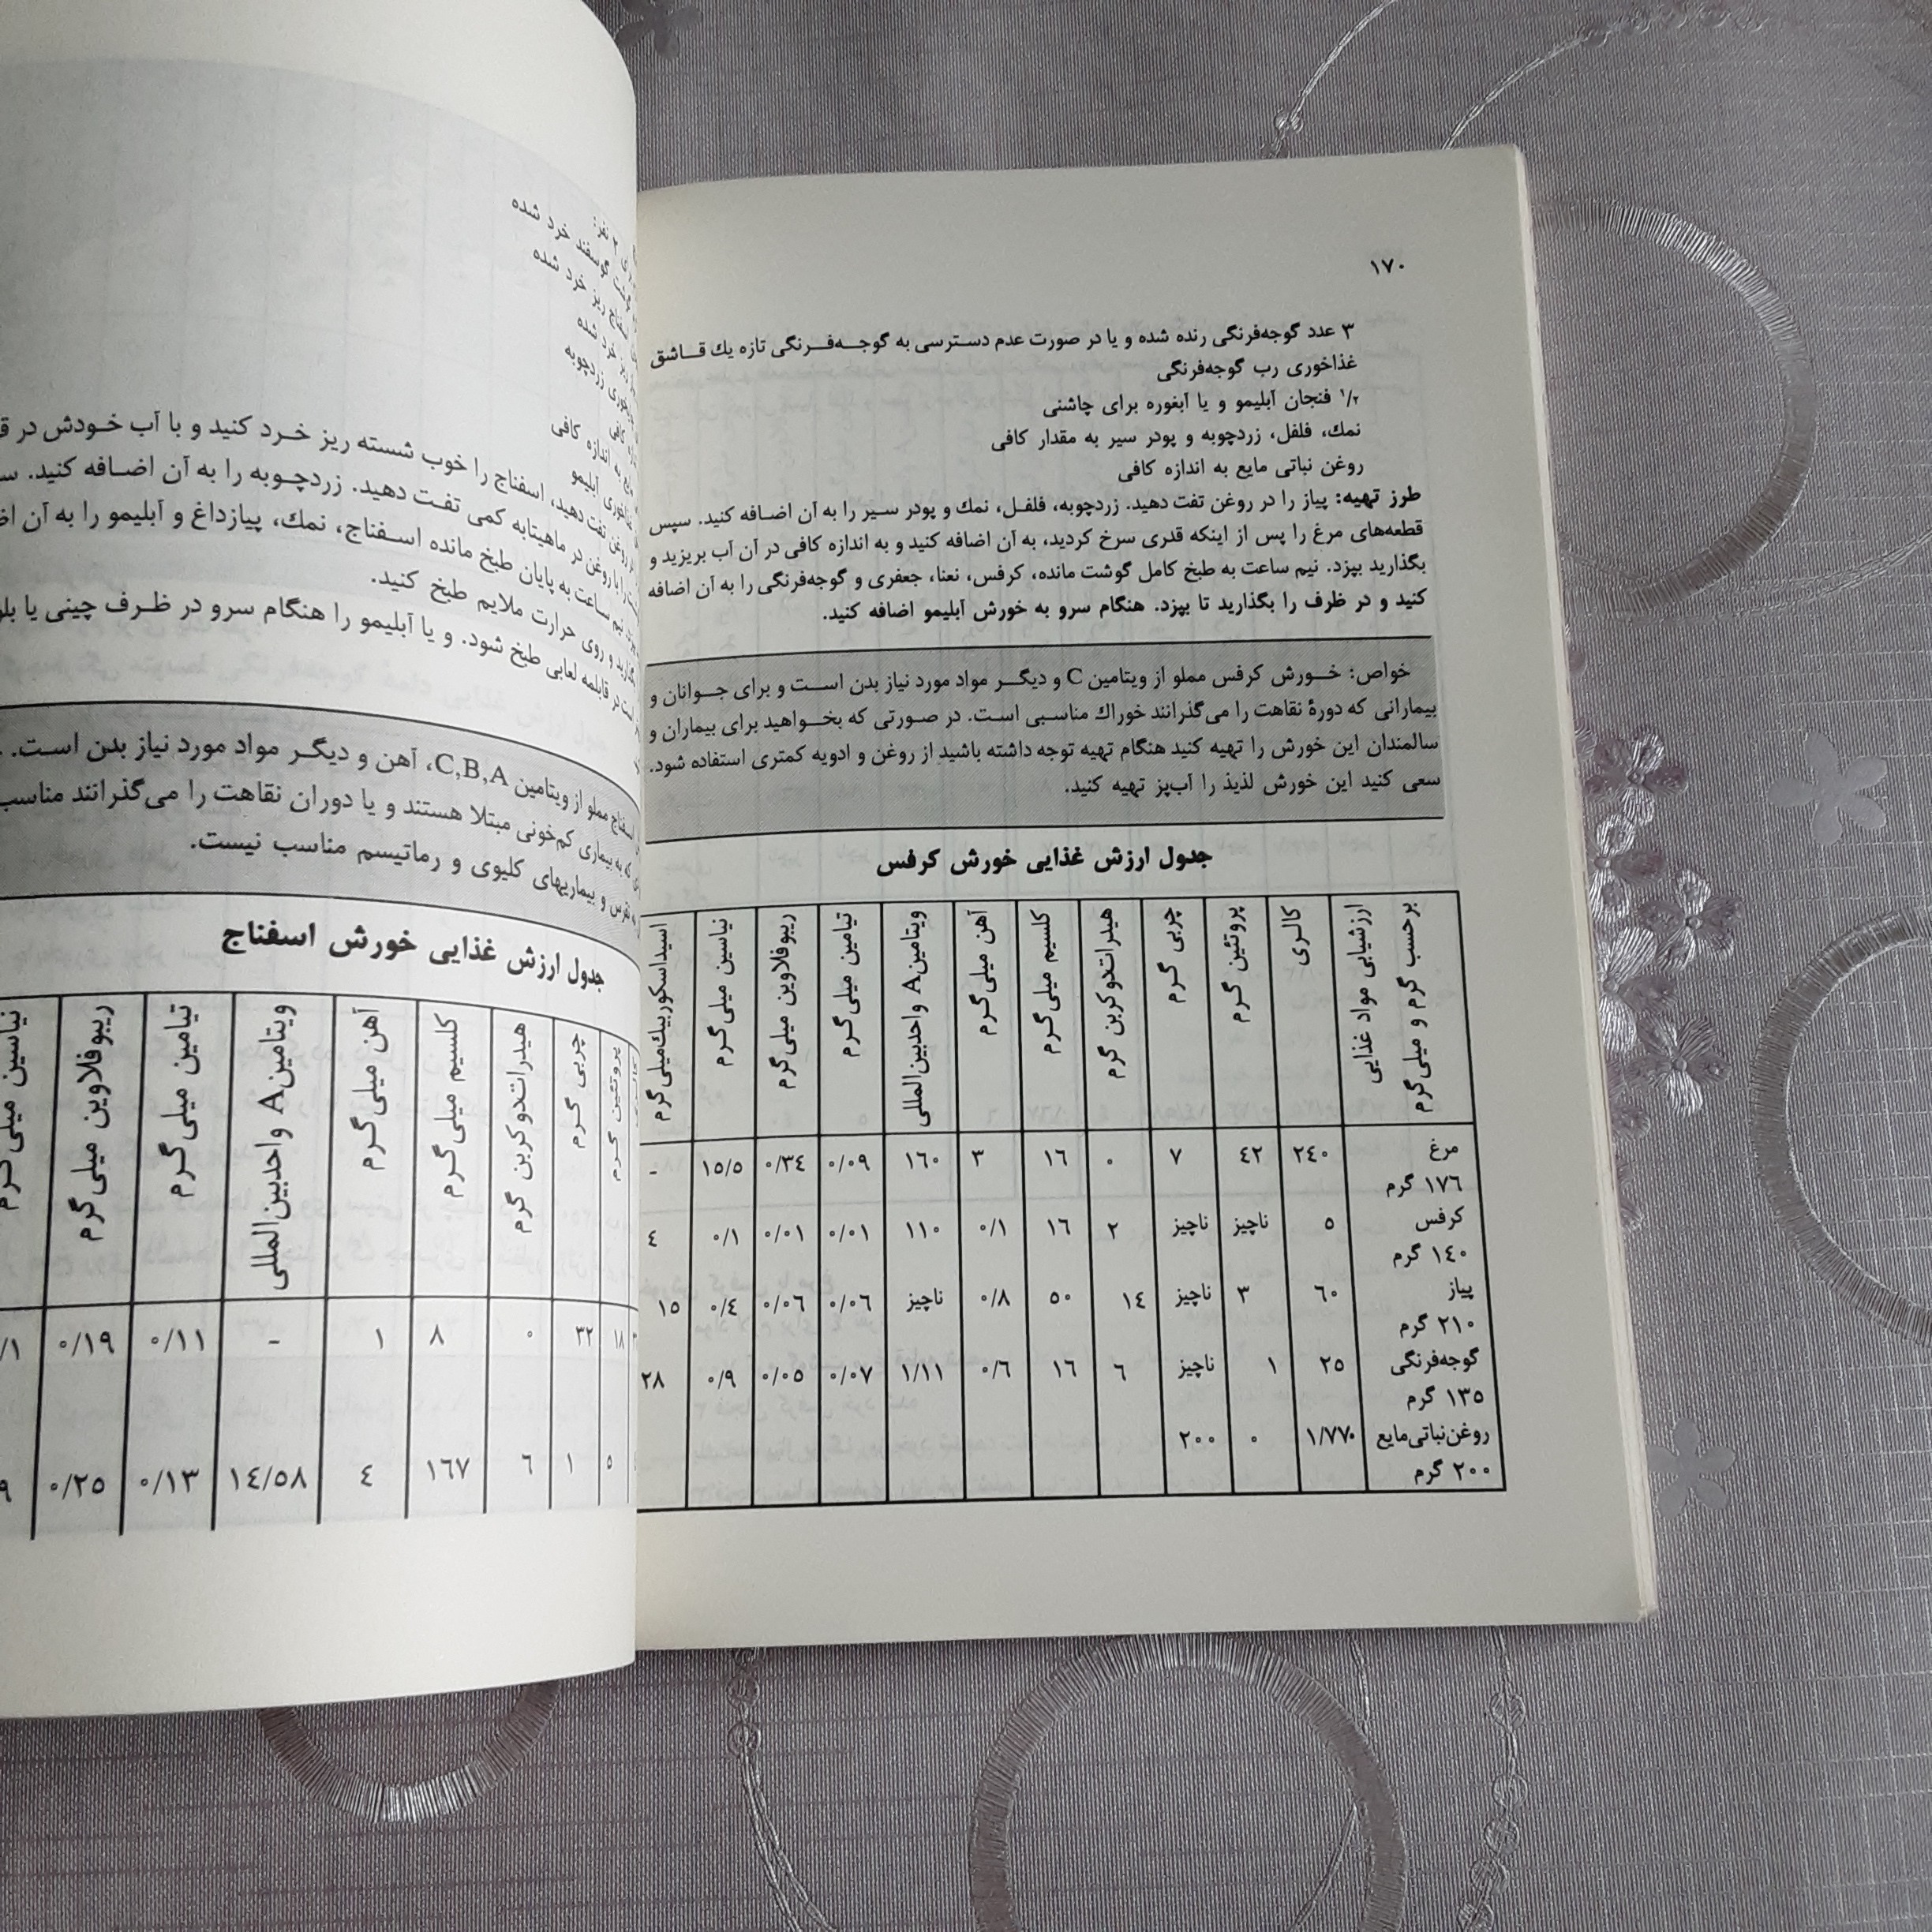 ١٧٠
٣ عدد گوجه‌فرنگی رنده شده و یا در صورت عدم دسترسی به گوجه‌فرنگی تازه یك قاشق
غذاخوری رب گوجه‌فرنگی
١/٢ فنجان آبلیمو و یا آبغوره برای چاشنی
نمك، فلفل، زردچوبه و پودر سیر به مقدار کافی
روغن نباتی مایع به اندازه کافی
طرز تهیه: پیاز را در روغن تفت دهید. زردچوبه، فلفل، نمك و پودر سیر را به آن اضافه کنید. سپس
قطعه‌های مرغ را پس از اینکه قدری سرخ کردید، به آن اضافه کنید و به اندازه کافی در آن آب بریزید و
بگذارید بپزد. نیم ساعت به طبخ کامل گوشت مانده، کرفس، نعنا، جعفری و گوجه‌فرنگی را به آن اضافه
کنید و در ظرف را بگذارید تا بپزد. هنگام سرو به خورش آبلیمو اضافه کنید.
خواص: خورش کرفس مملو از ویتامین C و دیگر مواد مورد نیاز بدن است و برای جوانان و
بیمارانی که دورهٔ نقاهت را می‌گذرانند خوراك مناسبی است. در صورتی که بخواهید برای بیماران و
سالمندان این خورش را تهیه کنید هنگام تهیه توجه داشته باشید از روغن و ادویه کمتری استفاده شود.
سعی کنید این خورش لذیذ را آب‌پز تهیه کنید.
جدول ارزش غذایی خورش کرفس
برحسب گرم و میلی‌گرم
ارزشیابی مواد غذایی
کالری
پروتئین گرم
چربی گرم
هیدرات‌دوکربن گرم
کلسیم میلی‌گرم
آهن میلی‌گرم
ویتامینA واحدبین‌المللی
تیامین میلی‌گرم
ریبوفلاوین میلی‌گرم
نیاسین میلی‌گرم
اسیداسکوربیك‌میلی‌گرم
مرغ ٢٤٠ ٤٢ ٧ ٠ ١٦ ٣ ١٦٠ ٠/٠٩ ٠/٣٤ ١٥/٥ -
١٧٦ گرم
کرفس ٥ ناچیز ناچیز ٢ ١٦ ٠/١ ١١٠ ٠/٠١ ٠/٠١ ٠/١ ٤
١٤٠ گرم
پیاز ٦٠ ٣ ناچیز ١٤ ٥٠ ٠/٨ ناچیز ٠/٠٦ ٠/٠٦ ٠/٤ ١٥
٢١٠ گرم
گوجه‌فرنگی ٢٥ ١ ناچیز ٦ ١٦ ٠/٦ ١/١١ ٠/٠٧ ٠/٠٥ ٠/٩ ٢٨
١٣٥ گرم
روغن‌نباتی‌مایع ١/٧٧٠ ٠ ٢٠٠
٢٠٠ گرم
نفر:
گوسفند خرد شده
ریز خرد شده
خرد شده
زردچوبه
کافی
به اندازه کافی
آبلیمو
روغن تفت دهید، اسفناج را خوب شسته ریز خرد کنید و با آب خودش در
را با روغن در ماهیتابه کمی تفت دهید. زردچوبه را به آن اضافه کنید.
نیم ساعت به پایان طبخ مانده اسفناج، نمك، پیازداغ و آبلیمو را به آن
بگذارید و روی حرارت ملایم طبخ کنید.
است در قابلمه لعابی طبخ شود. و یا آبلیمو را هنگام سرو در ظرف چینی یا
اسفناج مملو از ویتامین C,B,A، آهن و دیگر مواد مورد نیاز بدن است.
که به بیماری کم‌خونی مبتلا هستند و یا دوران نقاهت را می‌گذرانند
نقرس و بیماریهای کلیوی و رماتیسم مناسب نیست.
جدول ارزش غذایی خورش اسفناج
پروتئین گرم
چربی گرم
هیدرات‌دوکربن گرم
کلسیم میلی‌گرم
آهن میلی‌گرم
ویتامینA واحدبین‌المللی
تیامین میلی‌گرم
ریبوفلاوین میلی‌گرم
نیاسین میلی‌گرم
١٨ ٣٢ ٠ ٨ ١ - ٠/١١ ٠/١٩
٥ ١ ٦ ١٦٧ ٤ ١٤/٥٨ ٠/١٣ ٠/٢٥